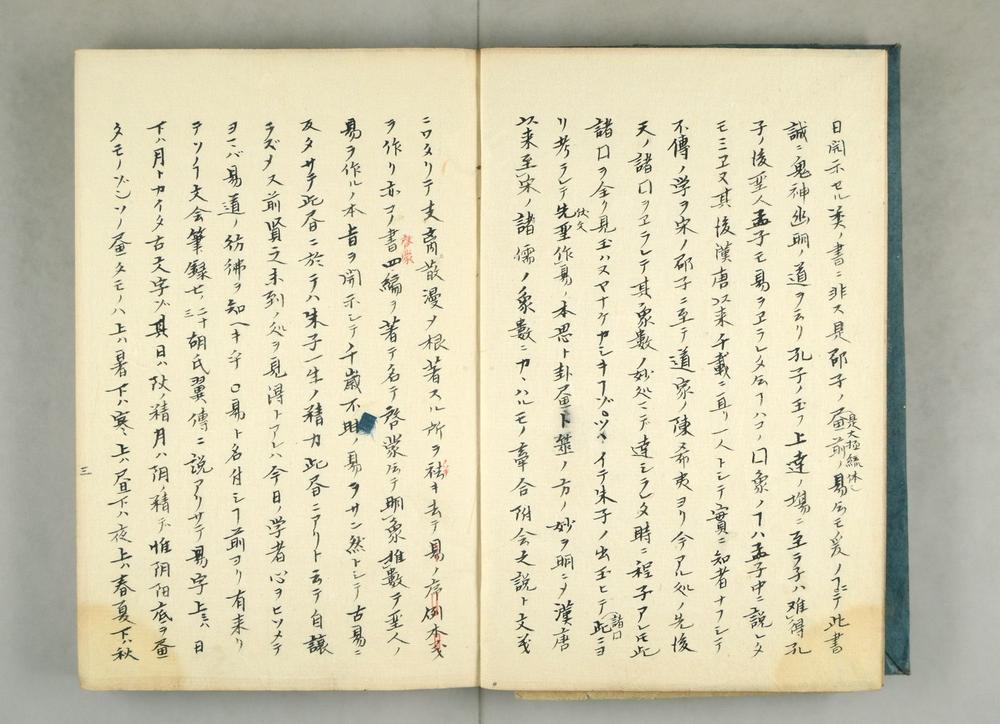 日開示セル类ノ書ニ非ス見邵子ノ畫前ノ易云モ爰ノヿニテ此書
是太極緼休
誠ニ鬼神幽明ノ道ヲ云リ孔子ノ玉フ上達ノ場ニ至ラ子ハ難得孔
子ノ後聖人孟子モ易ヲヱラレタ𪜈ハコノ口象ノヿハ孟子中ニ説レタ
モミヱヌ其後漢唐以来千載ニ亘リ一人トシテ實ニ知者ナフシテ
不傳ノ学ヲ宋ノ邵子ニ至テ道家ノ陳希夷ヨリ今アル処ノ先後
天ノ諸口ヲヱラレテ其象數ノ妙処ニテ達シラレタ時ニ程子アレ𪜈此
諸口ヲ全ク見玉ハスマナケカシキヿゾツヽイテ朱子ノ出玉ヒテ此ニヨ
諸口
リ考ラレテ先聖作易ノ本思ト卦畫ト筮ノ方ノ妙ヲ明ニメ漢唐
伏文
以来至宋ノ諸儒ノ象數ニカヽハルモノ牽合附会大説ト文義
ニワタリテ支离散漫メ根著スル所ヲ祛キ去テ易ノ序例本義
ヲ作リ亦コノ書四編ヲ著テ名テ啓蒙云テ明象推數テ聖人ノ
啓蒙
易ヲ作ルノ本旨ヲ開示シテ千歳不明ノ易ヲサン然トシテ古易ニ
反タサテ此畨ニ於テハ朱子一生ノ精力此畨ニアリト云テ自讓
ラズメス前賢之未到ノ処ヲ見得トアレハ今日ノ学者心ヲヒソメテ
ヨマバ易道ノ彷彿ヲ知ヘキ乎〇易ト名付シヿ前ヨリ有来リ
テソノイ文会筆録七ノ二十三胡氏翼傳ニ説アリサテ易字上ハ日
下ハ月トカイタ古文字ゾ其日ハ陽ノ精月ハ阴ノ精デ惟阴阳底ヲ畫
タモノゾソノ畫タモノハ上ハ暑下ハ寒上ハ昼下ハ夜上ハ春夏下ハ秋
三